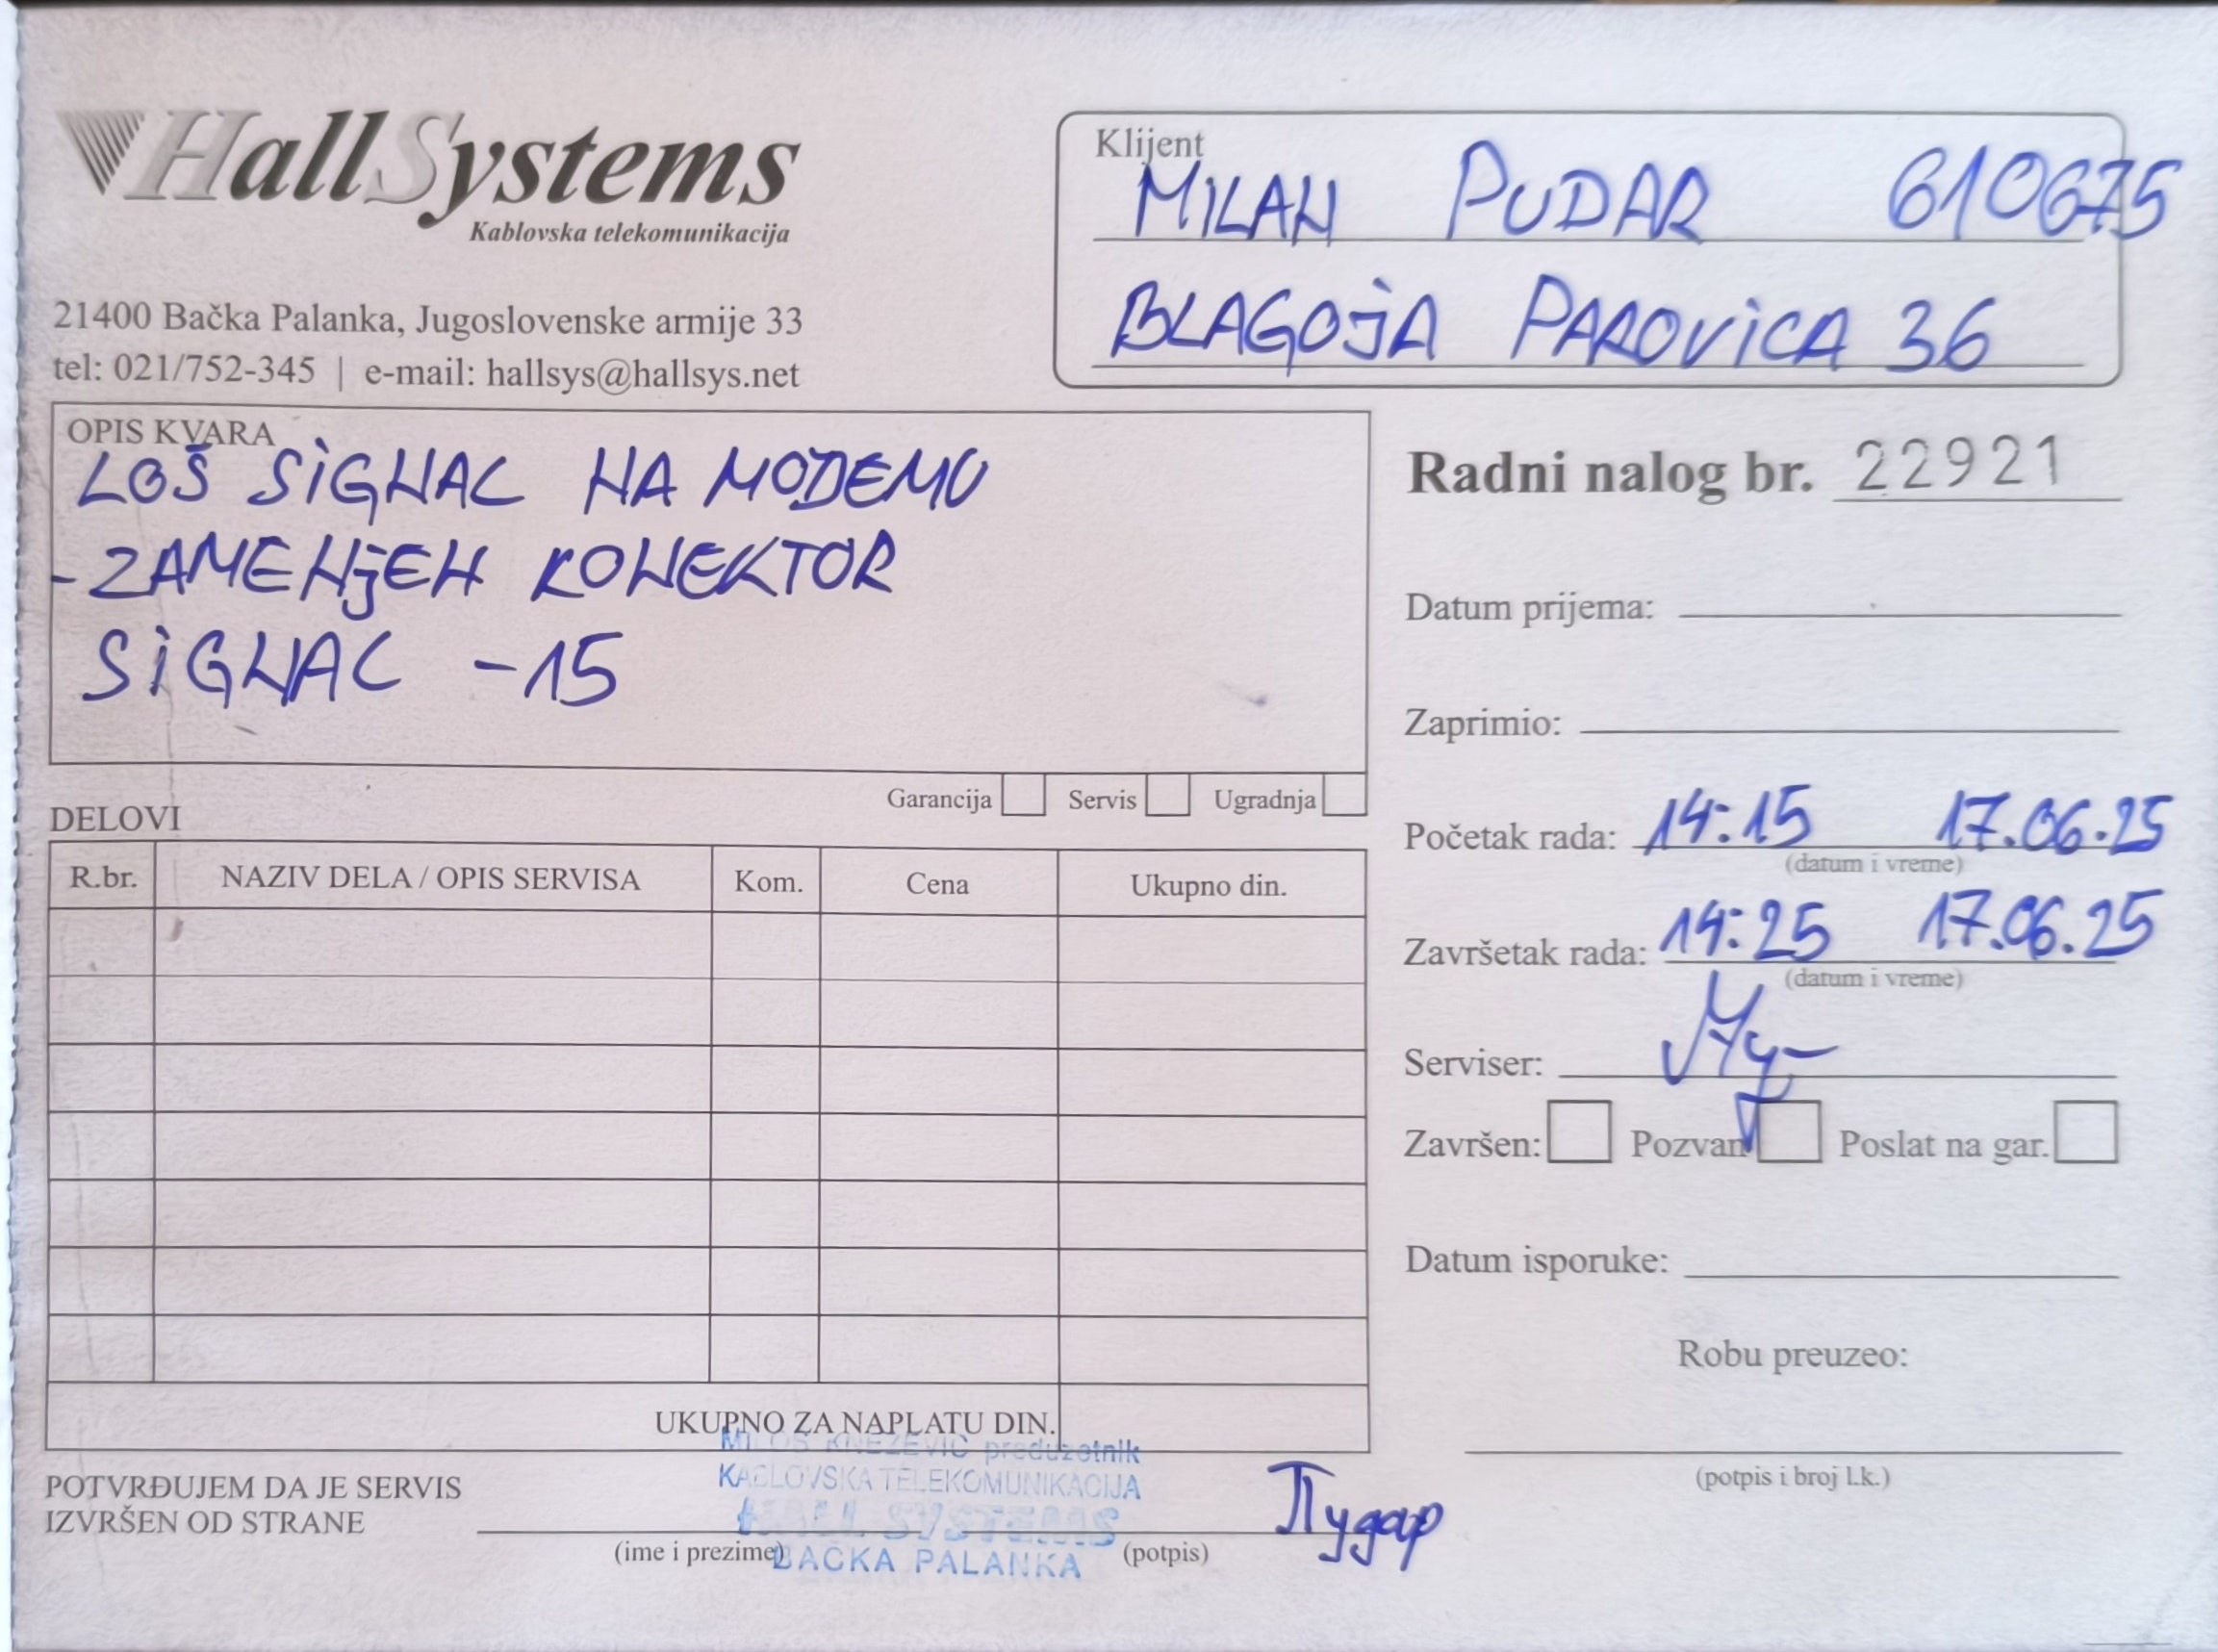 HallSystems
Kablovska telekomunikacija
21400 Bačka Palanka, Jugoslovenske armije 33
tel: 021/752-345 | e-mail: hallsys@hallsys.net
Klijent
MILAN PUDAR 610675
BLAGOJA PAROVICA 36
OPIS KVARA
LOŠ SIGNAL NA MODEMU
-ZAMENJEN KONEKTOR
SIGNAL -15
Garancija Servis Ugradnja
Radni nalog br. 22921
Datum prijema:
Zaprimio:
Početak rada: 14:15 17.06.25
(datum i vreme)
Završetak rada: 14:25 17.06.25
(datum i vreme)
Serviser:
Završen: Pozvan Poslat na gar.
Datum isporuke:
Robu preuzeo:
(potpis i broj l.k.)
DELOVI
R.br. NAZIV DELA / OPIS SERVISA Kom. Cena Ukupno din.
UKUPNO ZA NAPLATU DIN.
MILOŠ KNEŽEVIĆ preduzetnik
KABLOVSKA TELEKOMUNIKACIJA
HALL SYSTEMS
BAČKA PALANKA
POTVRĐUJEM DA JE SERVIS
IZVRŠEN OD STRANE
(ime i prezime) (potpis)
Пудар